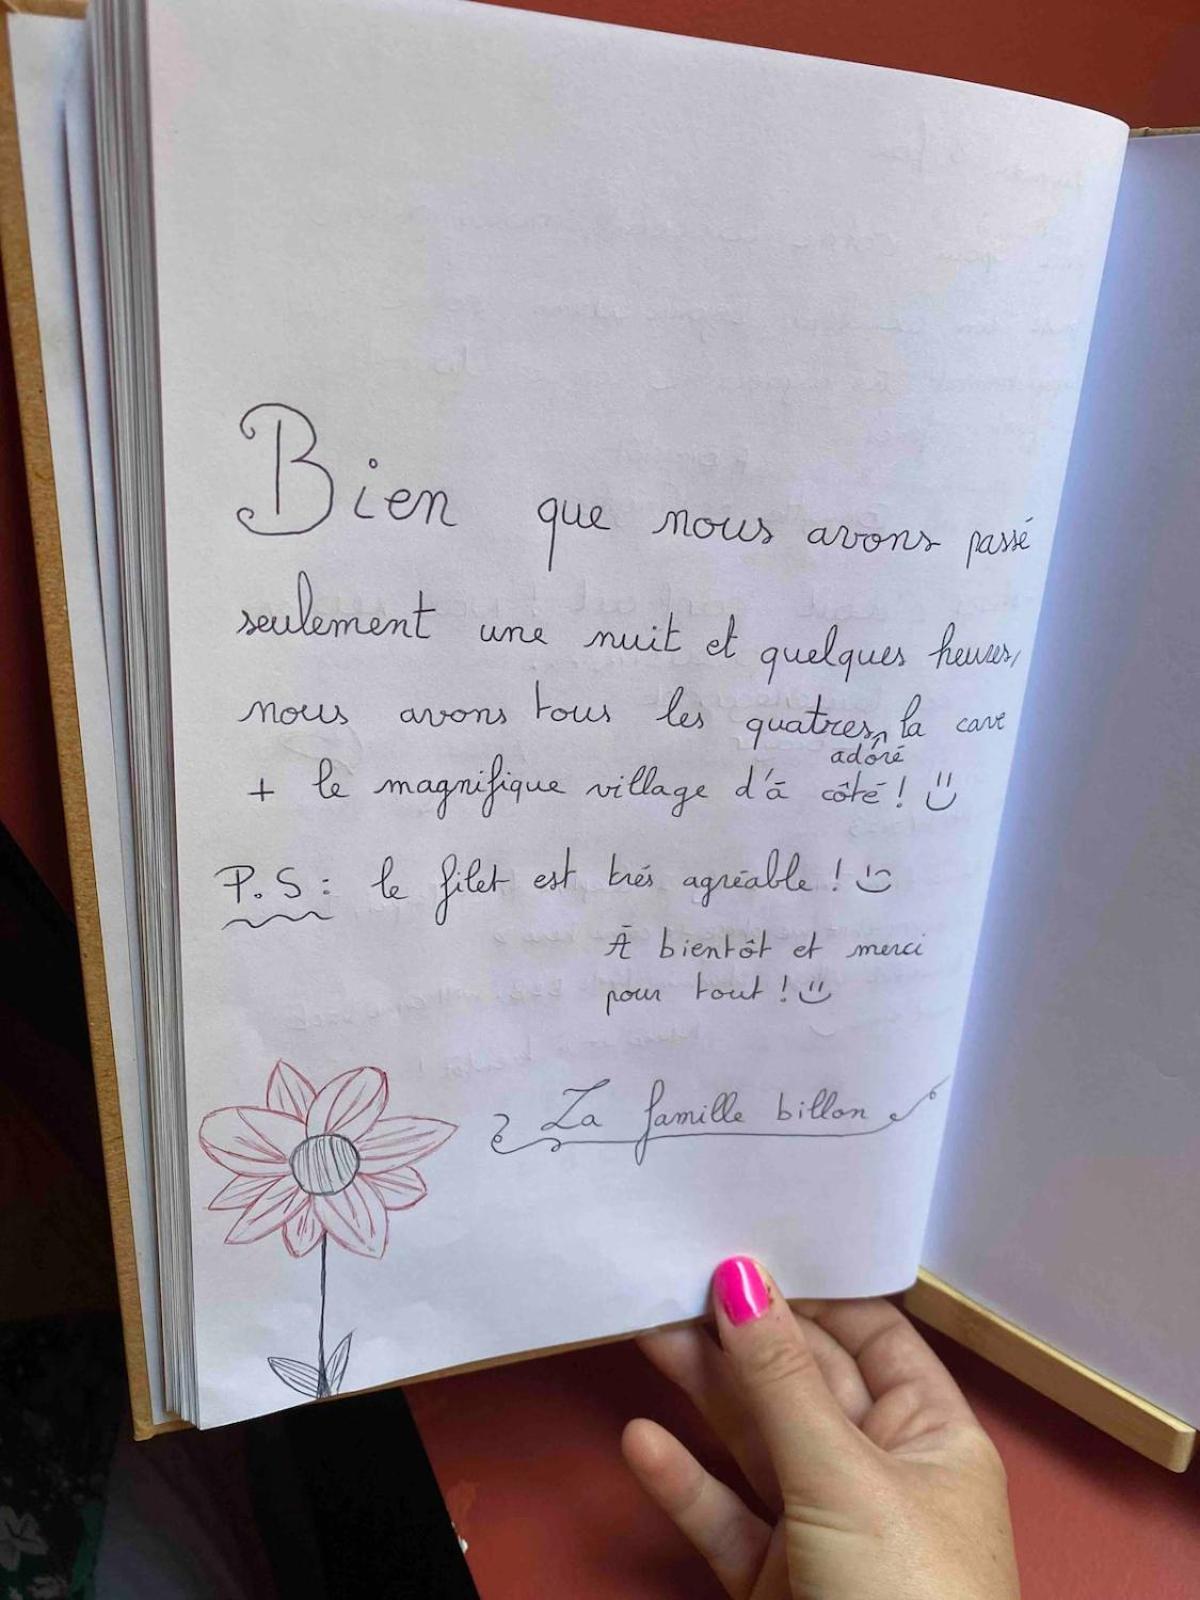 Bien que nous avons passé
seulement une nuit et quelques heures,
nous avons tous les quatres, la cave
adoré
+ le magnifique village d'à côté ! :)
P.S : le filet est trés agréable ! :)
À bientôt et merci
pour tout ! :)
La famille billon